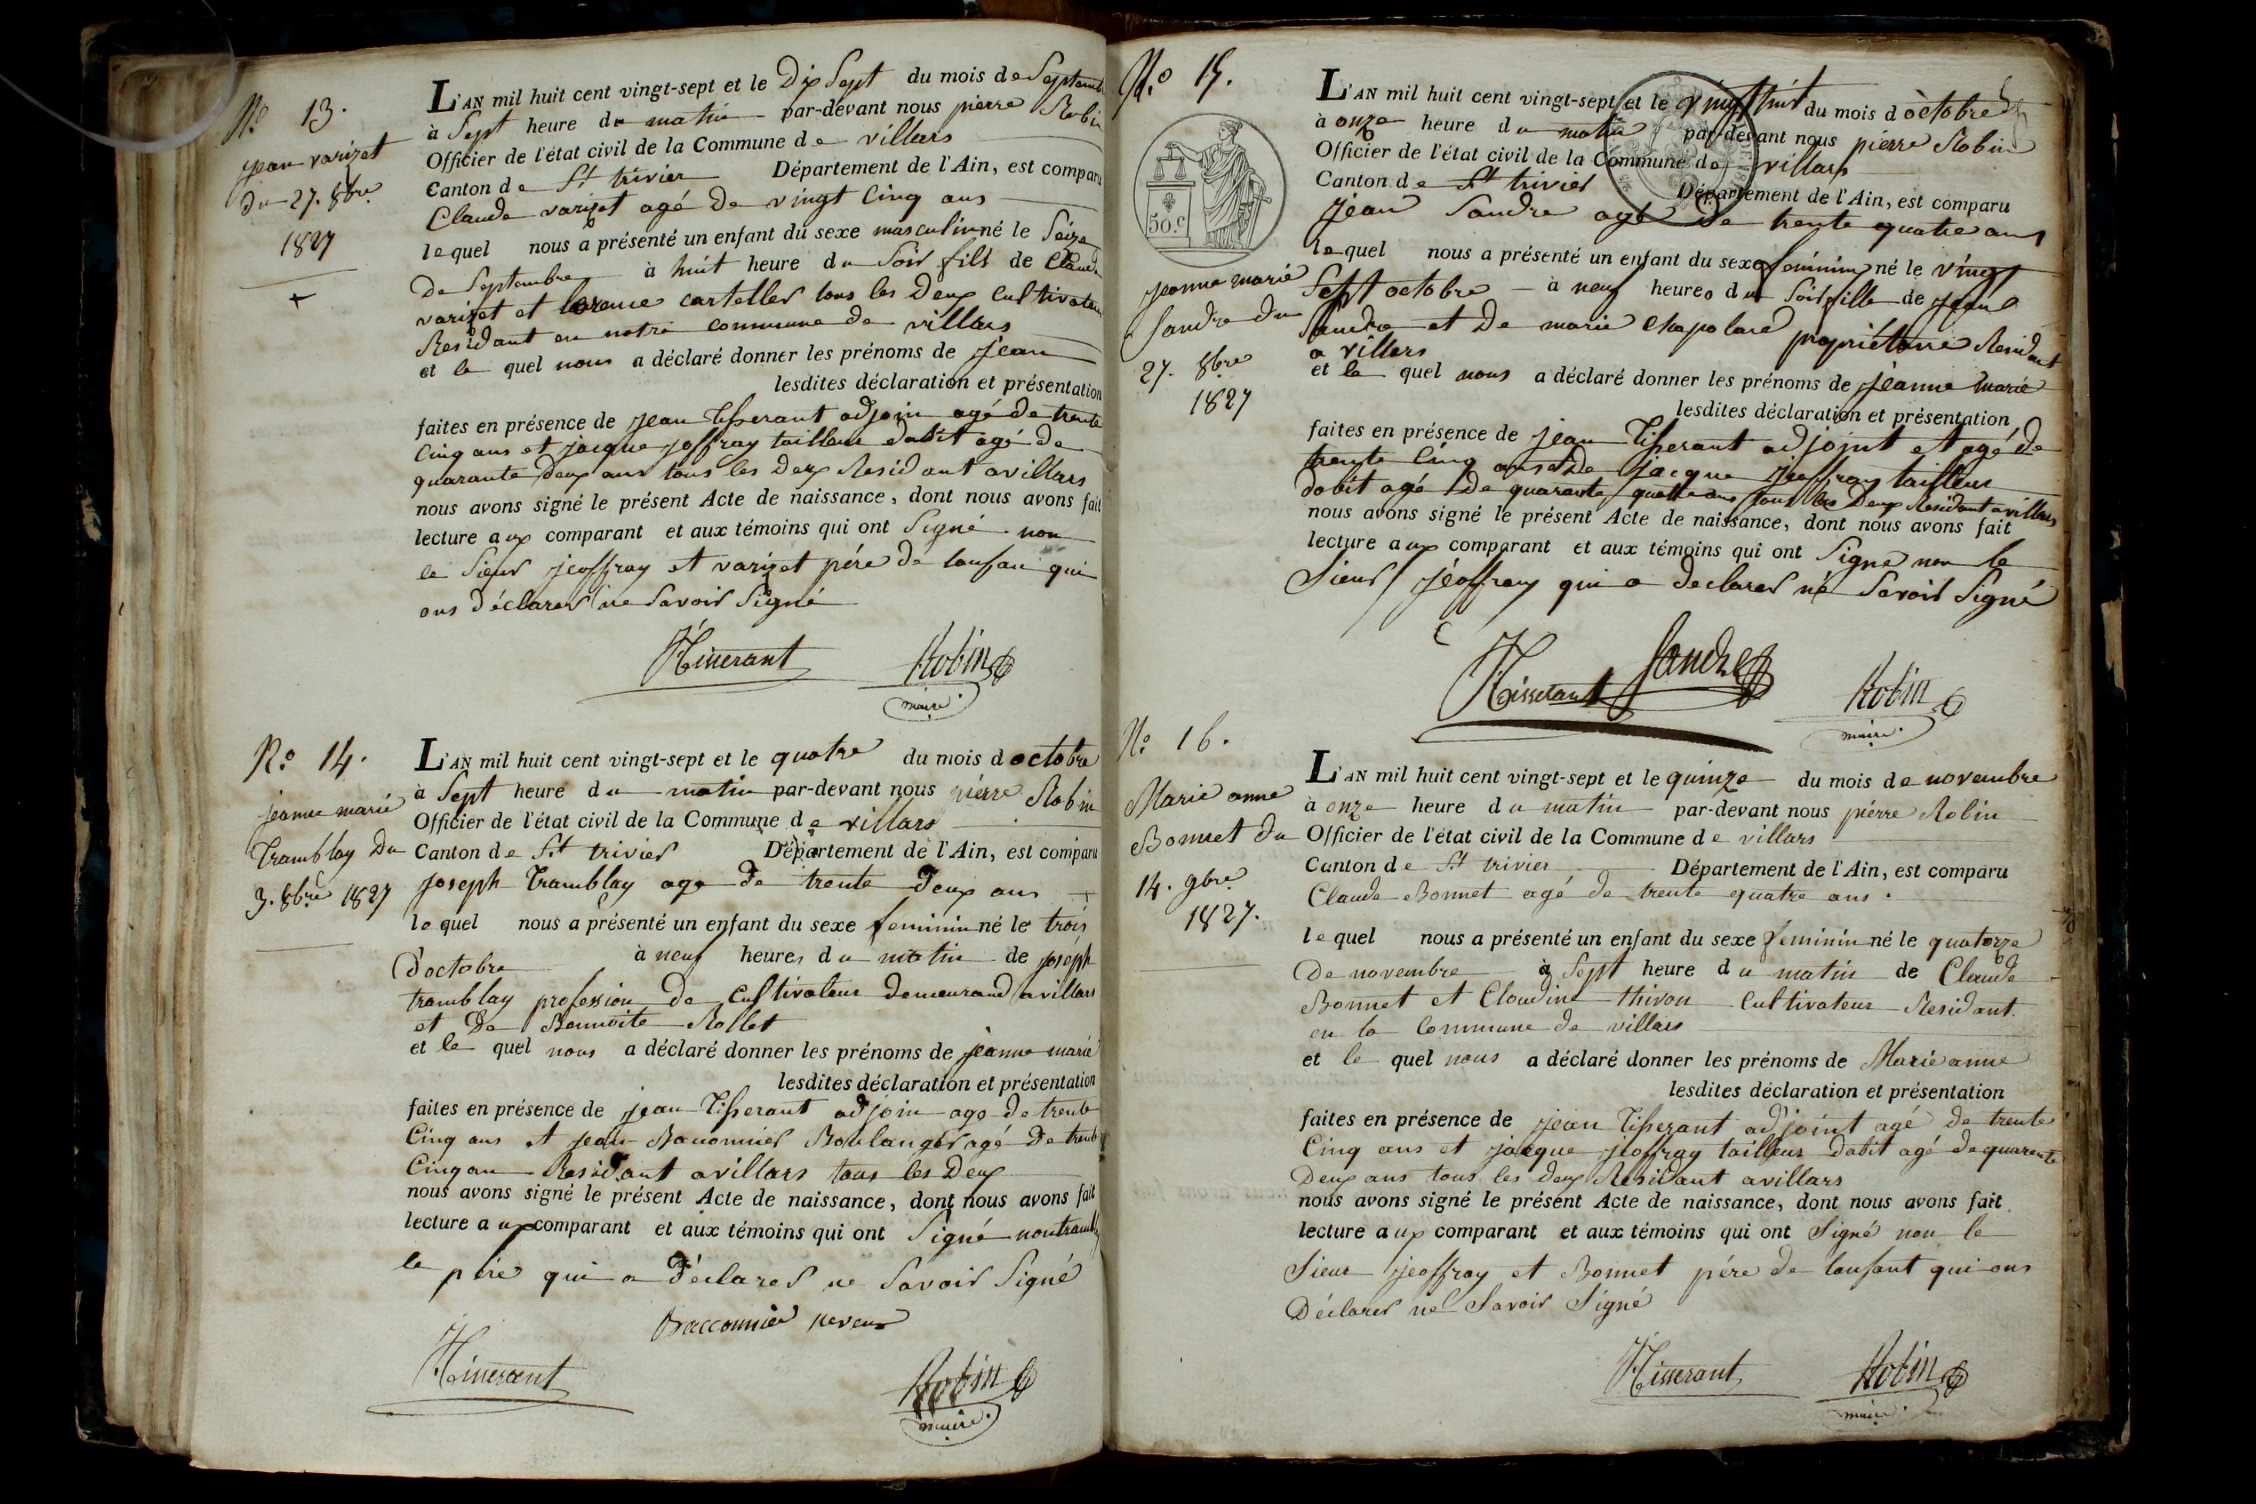 N.o 13.
jean varizet
du 27. 8bre
1827
L'AN mil huit cent vingt-sept et le Dix Sept du mois de Septemb
à Sept heure du matin par-devant nous pierre Robin
Officier de l'état civil de la Commune de villars
Canton de St trivier Département de l'Ain, est comparu
Claude varizet agé de vingt Cinq ans
lequel nous a présenté un enfant du sexe masculin né le Seize
De Septembre à huit heure du Soir fils de Claude
varizet et cartellet tous les Deux Cultivateur
Residant en notre commune de villars
et le quel nous a déclaré donner les prénoms de jean
lesdites déclaration et présentation
faites en présence de jean tisserant adjoin agé de trente
Cinq ans et jacque joffray tailleur dabit agé de
quarante Deux ans tous les Deux Residant a villars
nous avons signé le présent Acte de naissance, dont nous avons fait
lecture aux comparant et aux témoins qui ont Signé non
le Sieur jeoffray et varizet pére de lanfan qui
ons déclarer ne Savoir Signé
Tisserant Robin
maire
N.o 14.
jeanne marie
Tramblay Du
3. 8bre 1827
L'AN mil huit cent vingt-sept et le quatre du mois d octobre
à Sept heure du matin par-devant nous pierre Robin
Officier de l'état civil de la Commune de villars
Canton de St trivier Département de l'Ain, est comparu
joseph Tramblay age de trente Deux ans
lequel nous a présenté un enfant du sexe feminin né le trois
d'octobre à neuf heures du matin de joseph
tramblay profession de Cultivateur demeurand a villars
et De Bennoite Rollet
et le quel nous a déclaré donner les prénoms de jeanne marie
lesdites déclaration et présentation
faites en présence de jean tisserant adjoin age de trente
Cinq ans et jean Baconnier Boulanger agé De trente
Cinq an Residant a villars tous les Deux
nous avons signé le présent Acte de naissance, dont nous avons fait
lecture aux comparant et aux témoins qui ont Signé non
le pére qui a déclarer ne Savoir Signé
Bacconnier neveux
Tisserant Robin
maire
N.o 15.
50.c
jeanne marie
Sandre du
27. 8bre
1827
L'AN mil huit cent vingt-sept et le vingt huit du mois d octobre
à onze heure du matin par-devant nous pierre Robin
Officier de l'état civil de la Commune de villars
Canton de St trivier Département de l'Ain, est comparu
jean Sandre agé de trente quatre ans
lequel nous a présenté un enfant du sexe feminin né le vingt
Sept octobre à neuf heures du Soir fille de jean
Sandre et De marie Chapolard propriétaire Residant
a villars
et le quel nous a déclaré donner les prénoms de jeanne Marie
lesdites déclaration et présentation
faites en présence de jean tisserant adjoint et agé de
trente Cinq ans et de jacque jeoffray tailleur
dabit agé de quarante quatre ans tous les Deux Residant a villars
nous avons signé le présent Acte de naissance, dont nous avons fait
lecture aux comparant et aux témoins qui ont Signé non le
Sieur jéoffray qui a déclarer né Savoir Signé
Tisserant Sandre Robin
maire
N.o 16.
Marie anne
Bonnet du
14. 9bre
1827.
L'AN mil huit cent vingt-sept et le quinze du mois de novembre
à onze heure du matin par-devant nous pierre Robin
Officier de l'état civil de la Commune de villars
Canton de St trivier Département de l'Ain, est comparu
Claude Bonnet agé de trente quatre ans.
lequel nous a présenté un enfant du sexe feminin né le quatorze
De novembre à Sept heure du matin de Claude
Bonnet et Cloudine thivon Cultivateur Residant
en la Commune de villars
et le quel nous a déclaré donner les prénoms de Marie anne
lesdites déclaration et présentation
faites en présence de jean tisserant adjoint agé de trente
Cinq ans et jacque jeoffray tailleur dabit agé de quarente
Deux ans tous les deux Residant a villars
nous avons signé le présent Acte de naissance, dont nous avons fait
lecture aux comparant et aux témoins qui ont Signé non le
Sieur jeoffray et Bonnet pére de lanfant qui ons
Déclarer ne Savoir Signé
Tisserant Robin
maire